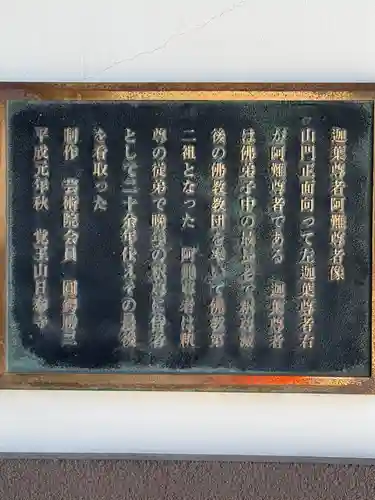 迦葉尊者阿難尊者像
山門正面向つて左迦葉尊者右
が阿難尊者である 迦葉尊者
は佛弟子中の最長老で釈尊滅
後の佛教教団を率いて佛教第
二祖となった 阿難尊者は釈
尊の従弟で晩年の釈尊に侍者
として二十余年仕えその最後
を看取った
制作 芸術院会員 圓鍔勝三
平成元年秋 覚王山日泰寺